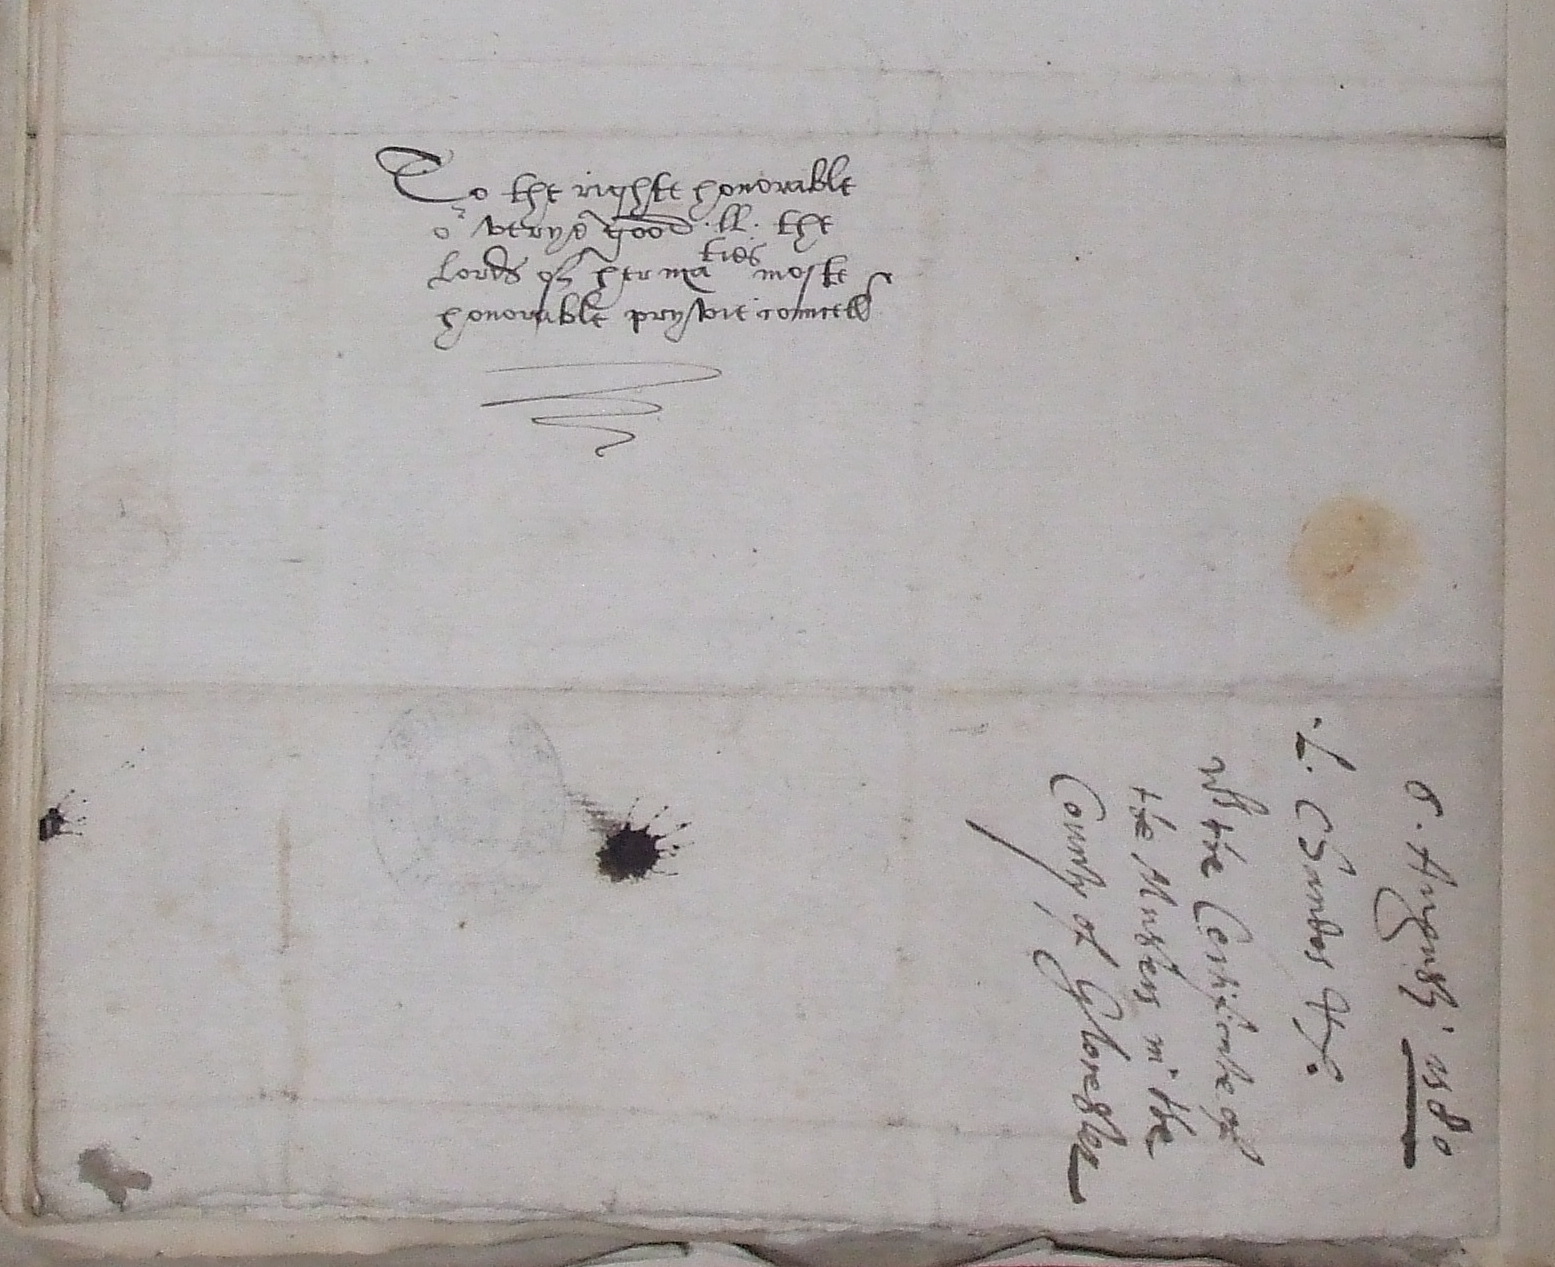 To the righte honorable
or verye good ll. the
Lords of her maties moste
honorable pryvie councell
6. Augusti. 1580
.L. Chandos &c.
wth the Certificate of
the Musters in the
County of Glocester